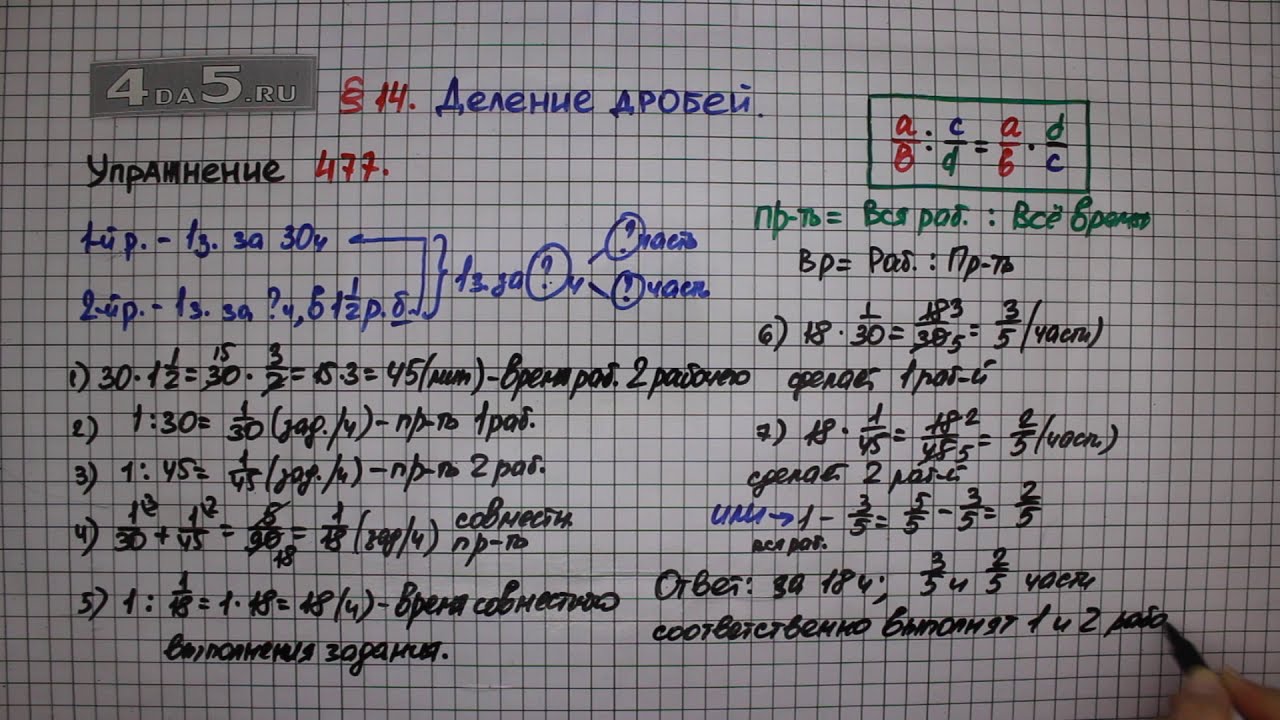 4DA5.RU
§ 14. Деление дробей.
Упражнение 477.
a/b : c/d = a/b · d/c
1-й р. - 1з. за 30ч
2-й р. - 1з. за ?ч, в 1 1/2 р. б
1з. за ? ч
? часть
? часть
1) 30 · 1 1/2 = 30 15 · 3/2 = 15 · 3 = 45 - время раб. 2 рабочего
2) 1 : 30 = 1/30 (зад./ч) - пр-ть 1 раб.
3) 1 : 45 = 1/45 (зад./ч) - пр-ть 2 раб.
4) 1/30 + 1/45 = 5/90 18 = 1/18 (зад/ч) совместн. пр-ть
5) 1 : 1/18 = 1 · 18 = 18 (ч) - время совместного
выполнения задания.
Пр-ть = Вся раб. : Всё время
Вр = Раб. : Пр-ть
6) 18 · 1/30 = 18 3/30 5 = 3/5 (части)
сделает 1 раб-й
7) 18 · 1/45 = 18 2/45 5 = 2/5 (части)
сделает 2 раб-й
или → 1 - 3/5 = 5/5 - 3/5 = 2/5
вся раб.
Ответ: за 18 ч; 3/5 и 2/5 части
соответственно выполнят 1 и 2 рабо